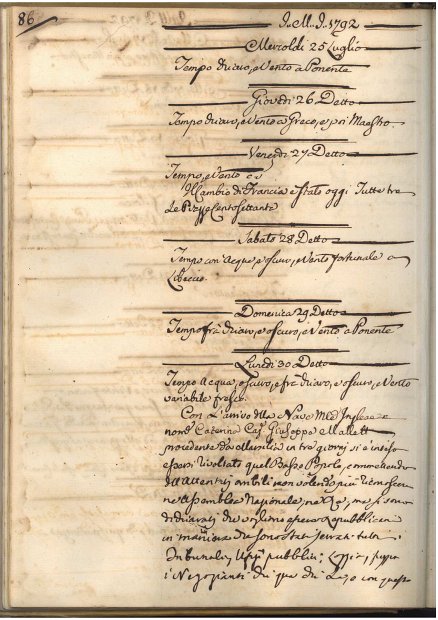 86
J. M. J. 1792
Mercoldì 25 Luglio
Tempo chiaro, e Vento a Ponente
Giovedì 26 Detto
Tempo chiaro, e Vento a Greco, e poi Maestro.
Venerdì 27 Detto
Tempo, e Vento
Il Cambio di Francia e stato oggi Tutte tre
Le Piazze Centosettanta
Sabato 28 Detto
Tempo con Acqua, e oscuro, e Vento fortunale a
Libeccio.
Domenica 29 Detto
Tempo frà chiaro, e oscuro, e Vento a Ponente
Lunedì 30 Detto
Tempo Acqua, oscuro, e frà chiaro, e oscuro, e Vento
variabile fresco.
Con L'arrivo della Nave
nom. Caterina Cap. Giuseppe Mallett
procedente da Marsilia in tre giorni si è inteso
essersi rivoltato quel Basso Popolo, commettendo
non volendo più riconoscere
ne Assemblea Nazionale, ne
dichiarati che vogliono essere repubblica
in maniera che sono stati serrati tutti i
Tribunali,
i Negozianti chi qua chi La, e con questo